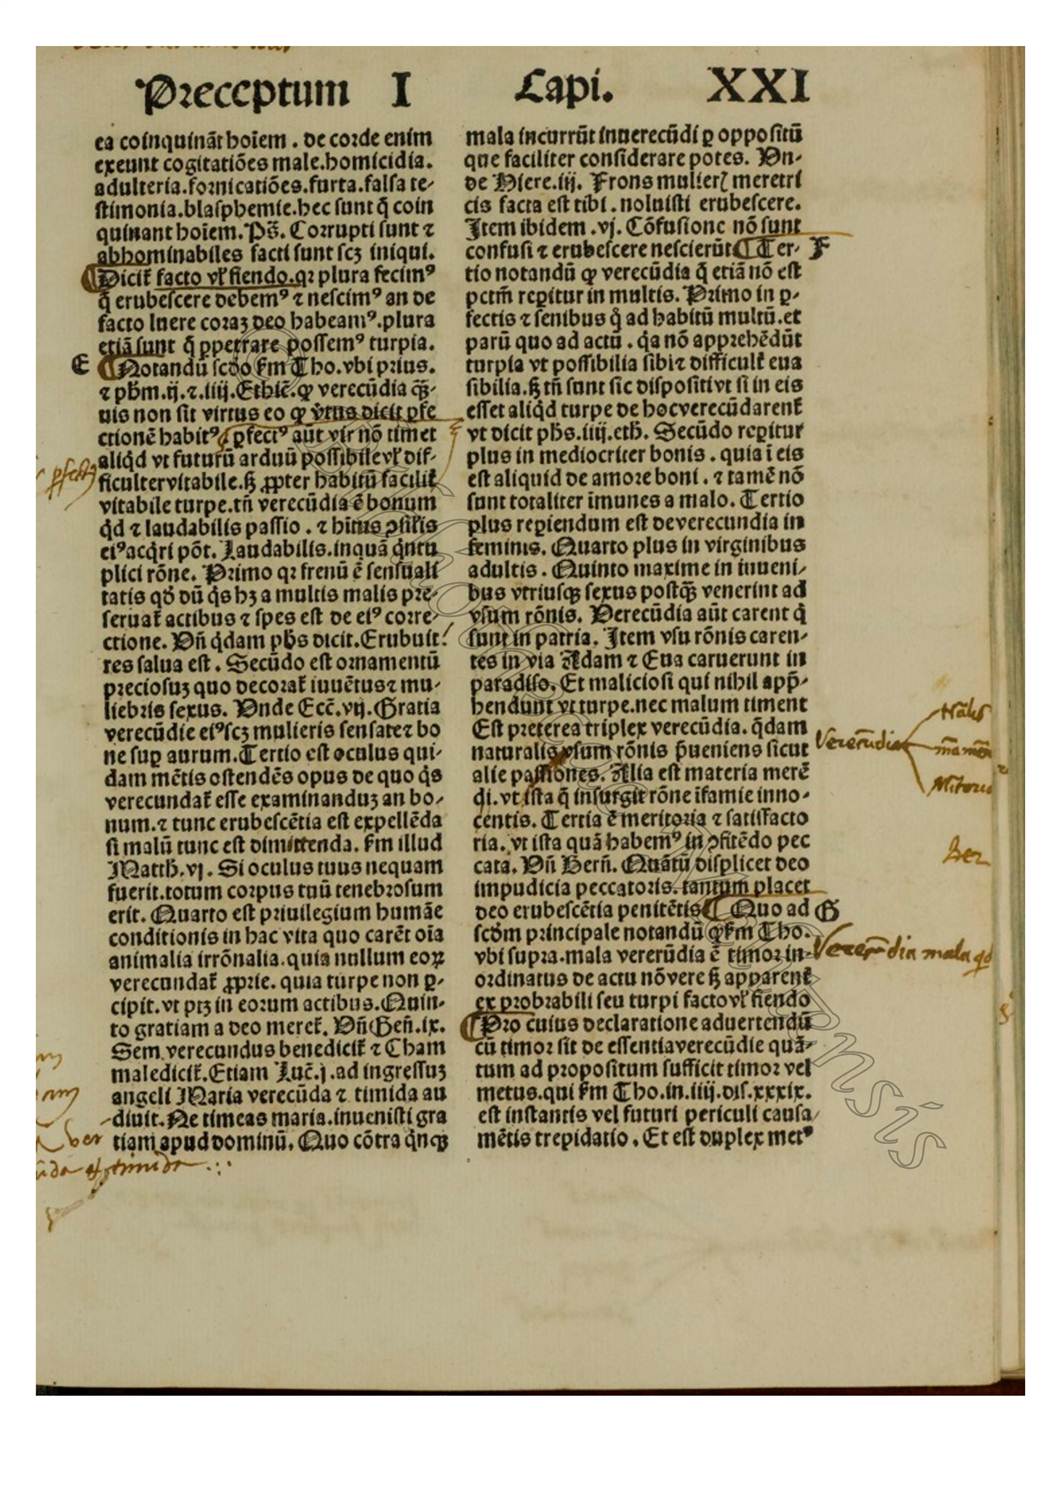 Preceptum I Capi. XXI
ea coinquinãt hoĩem . de corde enim
exeunt cogitatiões male.homicidia.
adulteria.fornicatiões.furta.falsa te-
stimonia.blasphemie.hec sunt q̃ coin
quinant hoĩem.Ps̃. Corrupti sunt ⁊
abhominabiles facti sunt scꝫ iniqui.
¶Dicit᷑ facto vl̓ fiendo.qꝛ plura fecimꝰ
q̃ erubescere debemꝰ ⁊ nescimꝰ an de
facto luere coraꝫ deo habeamꝰ.plura
etiã sunt q̃ ꝑpetrare possemꝰ turpia.
E ¶Notandũ scd̓o ẜm Tho.vbi prius.
⁊ phm̃.ij.⁊.iiij.Ethic̃.ꝙ verecũdia q̃ꝫ-
uis non sit virtus eo ꝙ v̓tus dicit ꝑfe
ctionẽ habitꝰ ꝑfectꝰ aũt vir nõ timet
aliqd̓ vt futurũ arduũ possibile vl̓ dif-
ficulter vitabile.ß ꝓpter habitũ facilit᷑
vitabile turpe.tñ verecũdia ẽ bonum
qd̓ ⁊ laudabilis passio . ⁊ hĩtus ꝯsil̓is
eiꝰ acq̃ri põt. Laudabilis.inquã q̃ntu
plici rõne. Primo qꝛ frenũ ẽ sensuali
tatis qd̓ dũ q̃s hꝫ a multis malis pre-
seruat᷑ actibus ⁊ spes est de eiꝰ corre-
ctione. Vñ q̃dam ph̓s dicit.Erubuit:
res salua est . Secũdo est ornamentũ
preciosuꝫ quo decorat᷑ iuuẽtus ⁊ mu-
liebris sexus. Vnde Ecc̃.vij.Gratia
verecũdie eiꝰ scꝫ mulieris sensate ⁊ bo
ne suꝑ aurum.Tertio est oculus qui-
dam mẽtis ostendẽs opus de quo q̃s
verecundat᷑ esse examinanduꝫ an bo-
num.⁊ tunc erubescẽtia est expellẽda
si malũ tunc est dimittenda. ẜm illud
Matth̓.vj. Si oculus tuus nequam
fuerit.totum corpus tuũ tenebrosum
erit. Quarto est priuilegium humãe
conditionis in hac vita quo carẽt oĩa
animalia irrõnalia.quia nullum eoꝝ
verecundat᷑ ꝓprie. quia turpe non ꝑ-
cipit.vt ptꝫ in eorum actibus.Quin-
to gratiam a deo meret᷑. Vñ Geñ.ix.
Sem verecundus benedicit᷑ ⁊ Cham
maledicit᷑.Etiam Luc̃.j.ad ingressuꝫ
angeli Maria verecũda ⁊ timida au
diuit.Ne timeas maria.inuenisti gra
tiam apud dominũ. Quo cõtra q̃nqꝫ
mala incurrũt inuerecũdi ꝑ oppositũ
que faciliter considerare potes. Vn-
de Hiere.iij. Frons mulierꝭ meretri
cis facta est tibi . noluisti erubescere.
Item ibidem .vj. Cõfusione nõ sunt
confusi ⁊ erubescere nescierũt ¶Ter- F
tio notandũ ꝙ verecũdia q̃ etiã nõ est
pctm̃ reꝑitur in multis. Primo in ꝑ-
fectis ⁊ senibus q̃ ad habitũ multũ.et
parũ quo ad actũ . q̃a nõ apprehẽdũt
turpia vt possibilia sibi ⁊ difficult᷑ eua
sibilia.ß tñ sunt sic dispositi vt si in eis
esset aliqd̓ turpe de hoc verecũdarent᷑
vt dicit ph̓s.iiij.eth̓. Secũdo reꝑitur
plus in mediocriter bonis . quia ĩ eis
est aliquid de amore boni . ⁊ tamẽ nõ
sunt totaliter ĩmunes a malo. Tertio
plus reꝑiendum est de verecundia in
feminis. Quarto plus in virginibus
adultis . Quinto maxime in iuueni-
bus vtriusqꝫ sexus postq̃ꝫ venerint ad
vsum rõnis. Verecũdia aũt carent q̃
sunt in patria. Item vsu rõnis caren-
tes in via Adam ⁊ Eua caruerunt in
paradiso. Et maliciosi qui nihil app̃-
hendunt vt turpe.nec malum timent
Est preterea triplex verecũdia. q̃dam
naturalis vsum rõnis p̃ueniens sicut
alie passiones. Alia est materia merẽ
di. vt ista q̃ insurgit rõne ĩfamie inno-
centis. Tertia ẽ meritoria ⁊ satisfacto
ria. vt ista quã habemꝰ in ꝯfitẽdo pec
cata. Vñ Berñ. Quãtũ displicet deo
impudicia peccatoris. tantum placet
deo erubescẽtia penitẽtis ¶ Quo ad G
scd̓m principale notandũ ꝙ ẜm Tho.
vbi supra. mala vererũdia ẽ timor in-
ordinatus de actu nõ vere ß apparent᷑
ex probrabili seu turpi facto vl̓ fiendo
¶Pro cuius declaratione aduertendũ
cũ timor sit de essentia verecũdie quã-
tum ad propositum sufficit timor vel
metus.qui ẜm Tho.in.iiij.dis.xxxix.
est instantis vel futuri periculi causa
mẽtis trepidatio . Et est duplex metꝰ
Verecũdia
Ber
Verecũdia mala qd̓